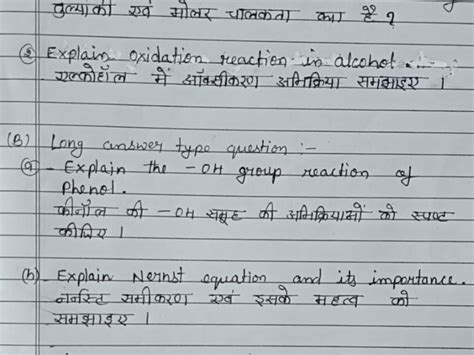 तुल्यांकी एवं मोलर चालकता क्या है ?
Explain oxidation reaction in alcohol....
एल्कोहॉल में ऑक्सीकरण अभिक्रिया समझाइए ।
(B) Long answer type question :-
(a) - Explain the -OH group reaction of
Phenol.
फीनॉल की -OH समूह की अभिक्रियाओं को स्पष्ट
कीजिए ।
(b) - Explain Nernst equation and its importance.
नर्नस्ट समीकरण एवं इसके महत्व को
समझाइए ।